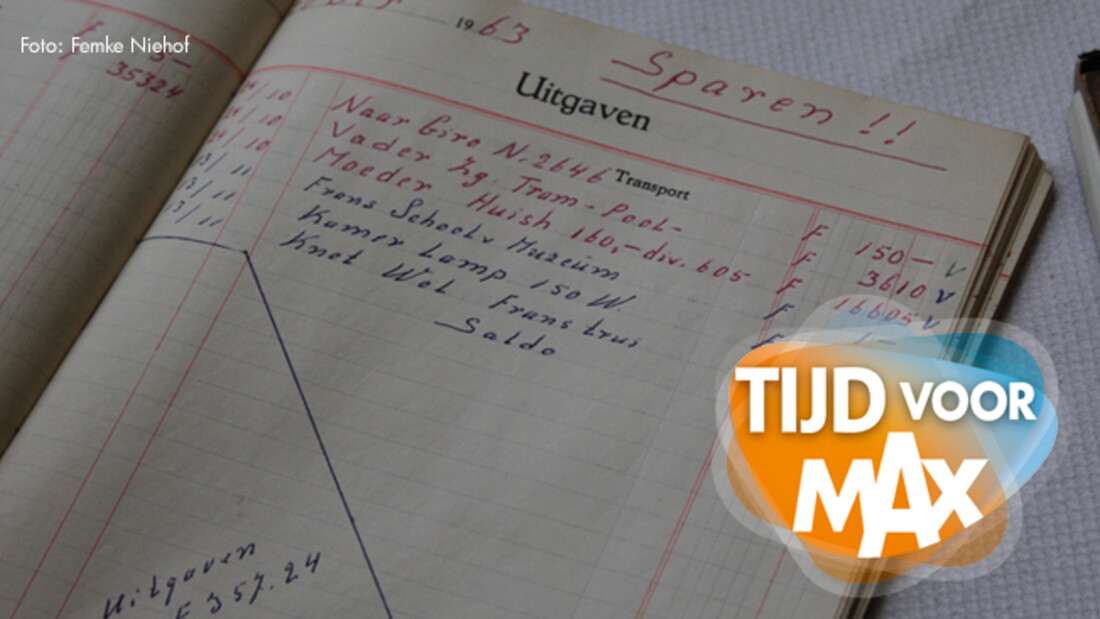 Foto: Femke Niehof
3-
35324
1963
Sparen!!
Uitgaven
Transport
Naar Giro N. 2646 F 150- V
Vader Zg. Tram-Pool- F 3610 V
Moeder Huish 160,- div. 605 F 16605 V
Frans School v Muzeüm F 1-
Kamer Lamp 150 W.
Knot Wol. Frans trui
Saldo
Uitgaven
F 357.24
TIJD VOOR
MAX